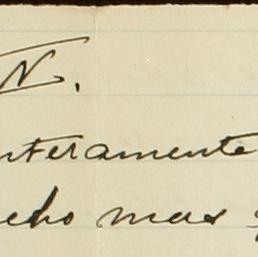 N.
nteramente
cho mas